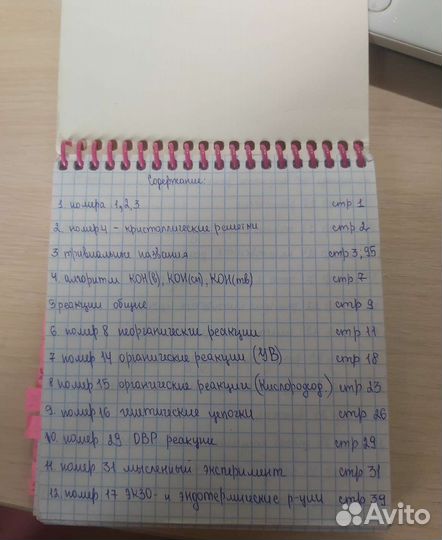 Содержание:
1. номера 1,2,3 стр 1
2. номер 4 - кристаллические решетки стр 2
3 тривиальные названия стр 3,95
4. алгоритм КОН(в), КОН(сп), КОН(тв) стр 7
5 реакции общие стр 9
6. номер 8 неорганические реакции стр 11
7 номер 14 органические реакции (УВ) стр 18
8 номер 15 органические реакции (кислород.) стр 23
9. номер 16 генетические цепочки стр 26
10. номер 29 ОВР реакции стр 29
11. номер 31 мысленный эксперимент стр 31
12. номер 17 экзо- и эндотермические р-ции стр 39
Avito